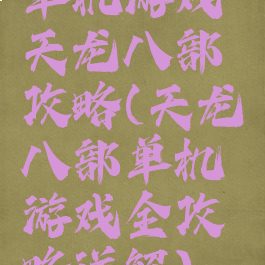 单机游戏
天龙八部
攻略(天龙
八部单机
游戏全攻
略详解)